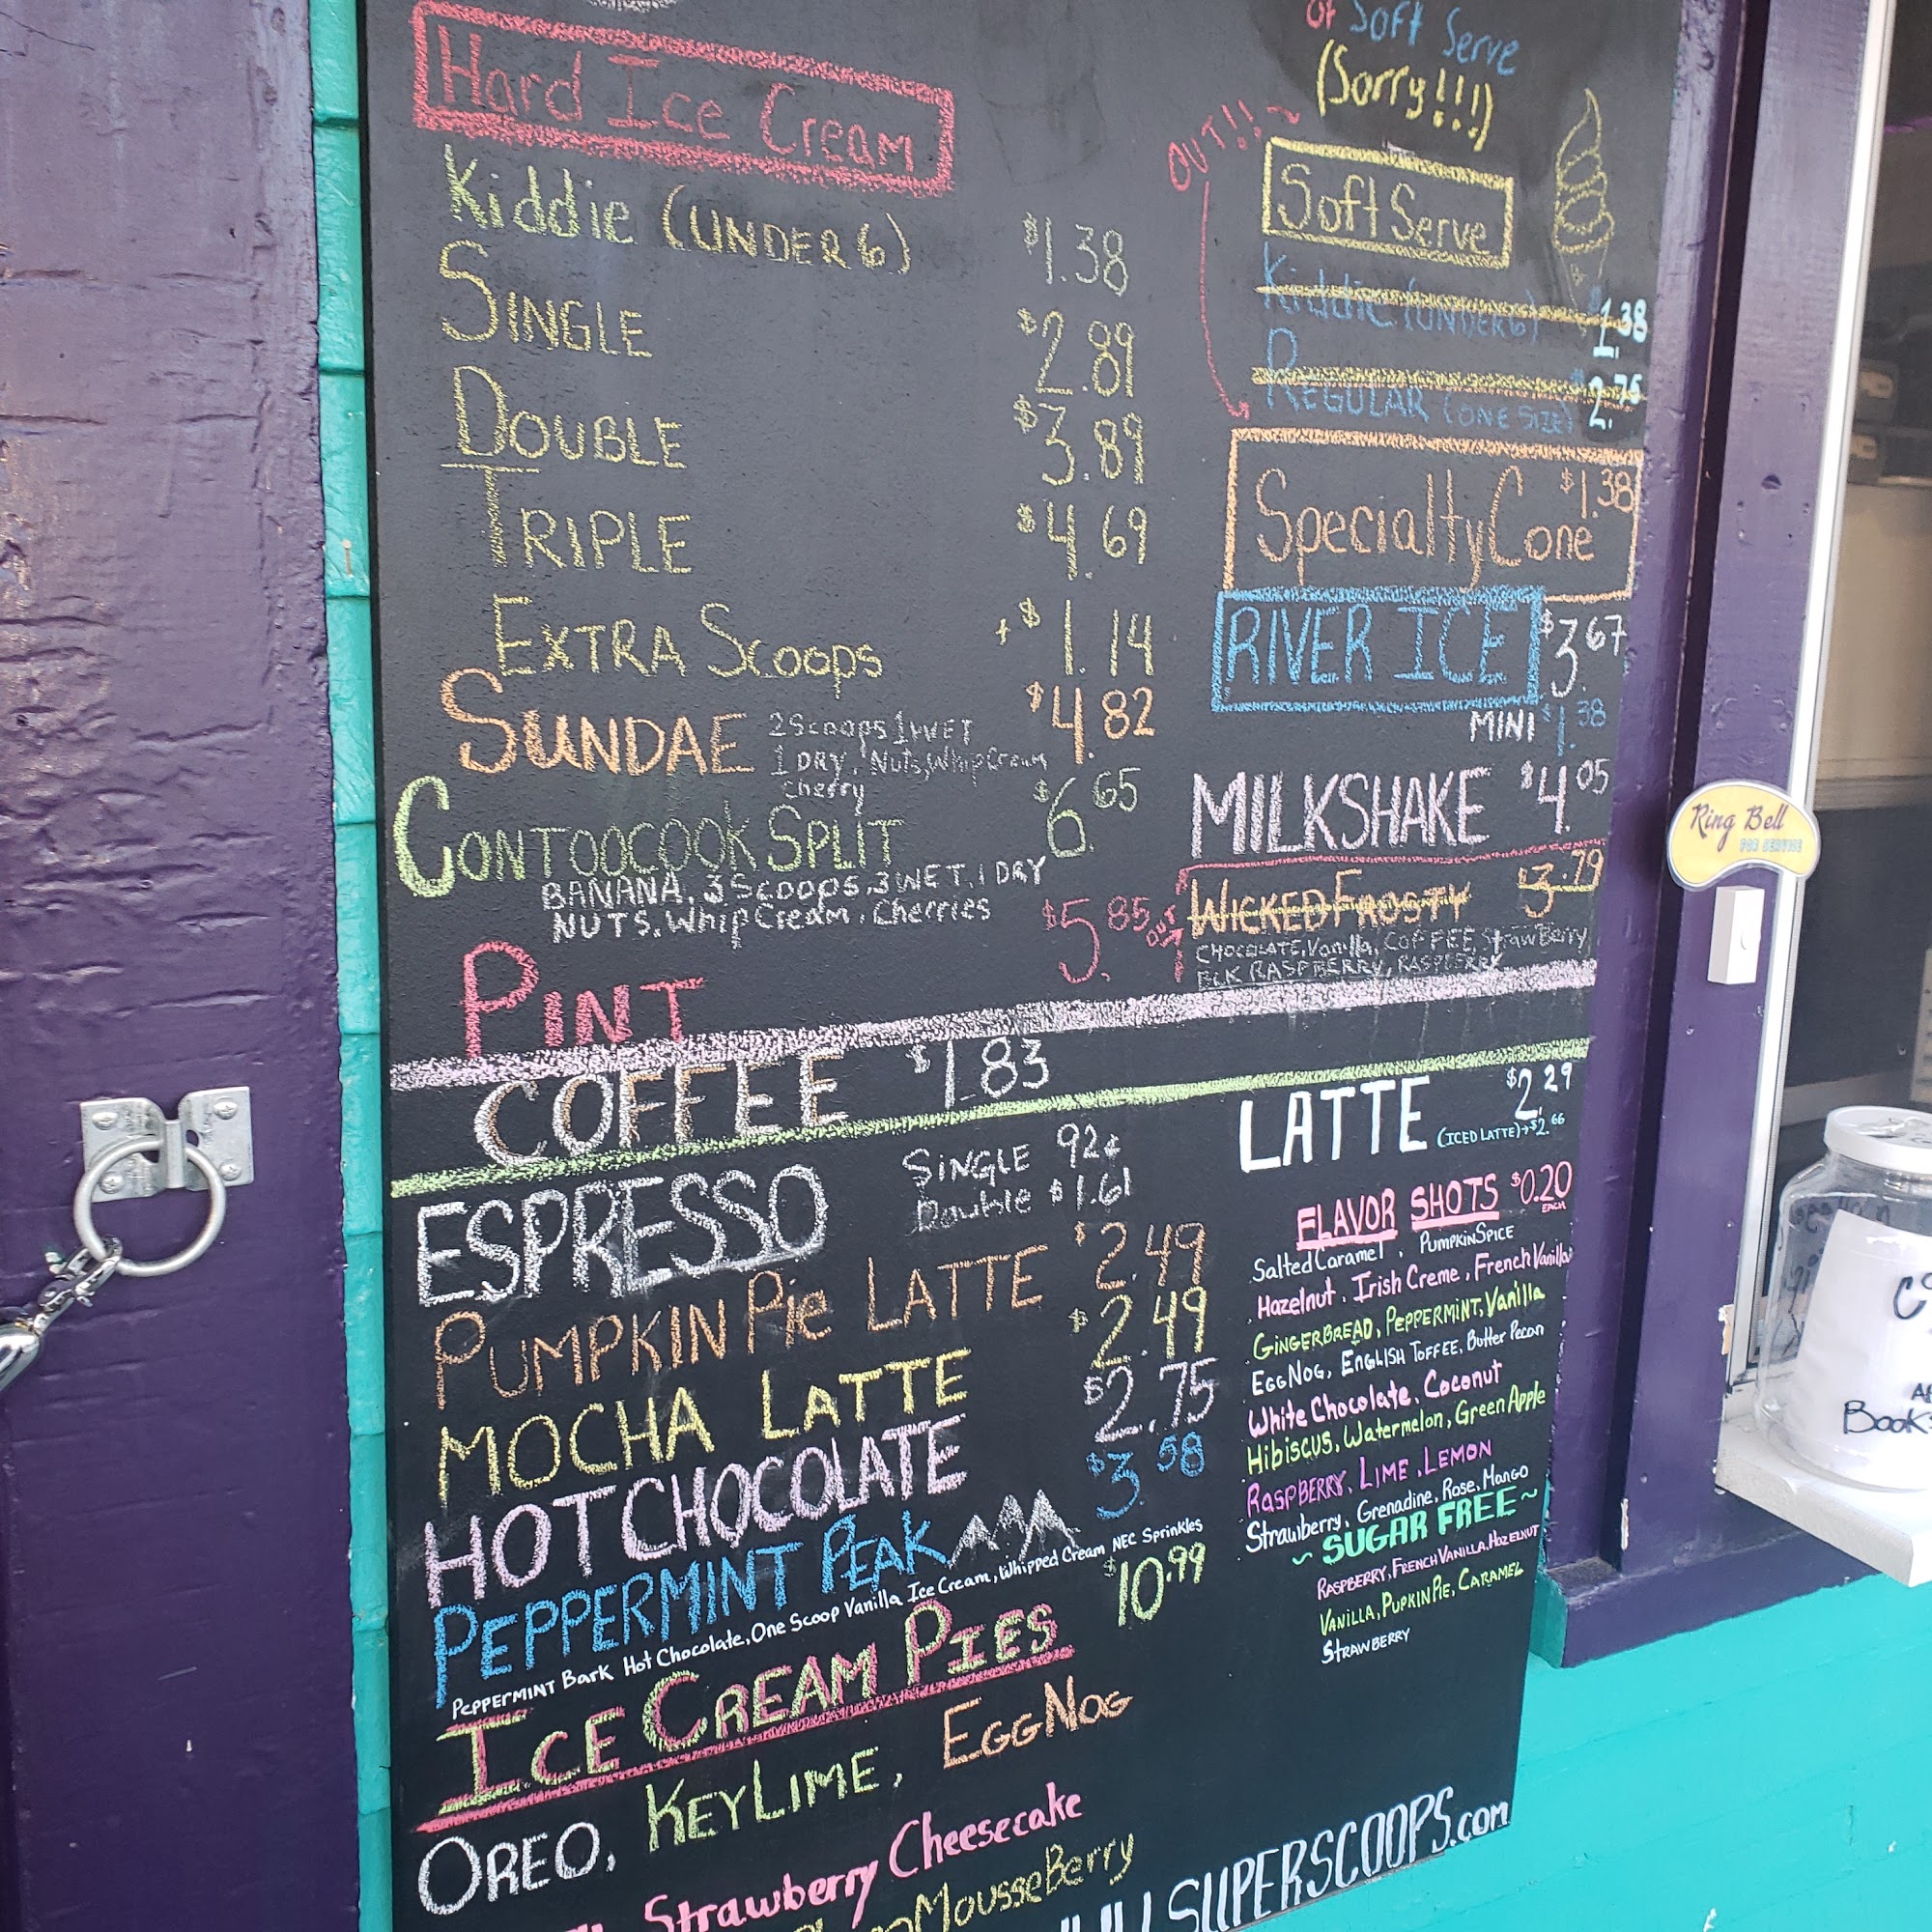 Hard Ice Cream
Kiddie (UNDER 6) $1.38
SINGLE $2.89
DOUBLE $3.89
TRIPLE $4.69
EXTRA Scoops +$1.14
SUNDAE $4.82
2 Scoops 1 WET
1 DRY, Nuts, Whip Cream
Cherry
CONTOOCOOK SPLIT $6.65
BANANA, 3 Scoops, 3 WET, 1 DRY
NUTS, Whip Cream, Cherries
PINT $5.85
of Soft Serve
(Sorry!!!)
OUT!!
Soft Serve
Kiddie (UNDER 6) $1.38
REGULAR (ONE SIZE) $2.75
Specialty Cone $1.38
RIVER ICE $3.67
MINI $1.38
MILKSHAKE $4.05
OUT
WICKED FROSTY 3.79
CHOCOLATE, Vanilla, COFFEE, StrawBerry
BLK RASPBERRY, RASPBERRY
COFFEE $1.83
ESPRESSO
SINGLE 92¢
Double $1.61
PUMPKIN Pie LATTE $2.49
MOCHA LATTE $2.49
HOT CHOCOLATE $2.75
PEPPERMINT PEAK $3.58
PEPPERMINT Bark Hot Chocolate, One Scoop Vanilla Ice Cream, Whipped Cream NEC Sprinkles
ICE CREAM PIES $10.99
OREO, KEY LIME, EGGNOG
Strawberry Cheesecake
MousseBerry
LATTE $2.29
(ICED LATTE)→$2.66
FLAVOR SHOTS $0.20
EACH
Salted Caramel, PUMPKIN SPICE
Hazelnut, Irish Creme, French Vanilla
GINGERBREAD, PEPPERMINT, Vanilla
EGGNOG, ENGLISH TOFFEE, Butter Pecan
White Chocolate, Coconut
HIBISCUS, Watermelon, Green Apple
RASPBERRY, LIME, LEMON
Strawberry, Grenadine, Rose, Mango
~ SUGAR FREE ~
RASPBERRY, FRENCH VANILLA, HAZELNUT
VANILLA, PUPKIN PIE, CARAMEL
STRAWBERRY
SUPERSCOOPS.com
Ring Bell
FOR SERVICE
Book